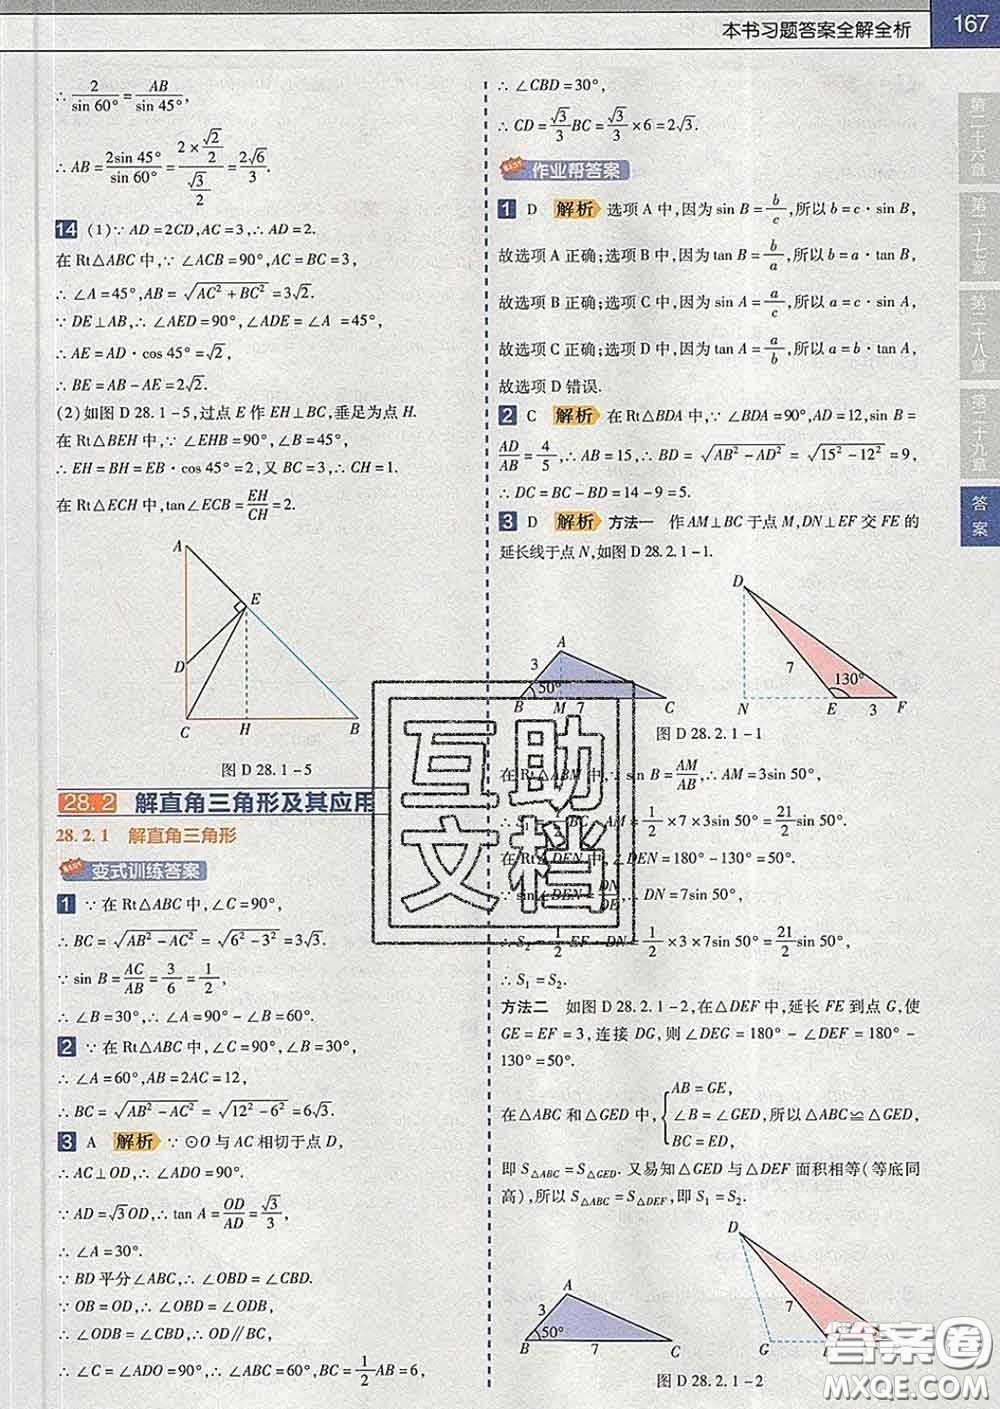 本书习题答案全解全析 167
∴ 2/sin 60° = AB/sin 45°,
∴ AB = 2sin 45°/sin 60° = (2×√2/2)/(√3/2) = 2√6/3.
14 (1)∵ AD=2CD,AC=3,∴ AD=2.
在 Rt△ABC 中,∵ ∠ACB=90°,AC=BC=3,
∴ ∠A=45°,AB=√(AC²+BC²)=3√2.
∵ DE⊥AB,∴ ∠AED=90°,∠ADE=∠A =45°,
∴ AE=AD·cos 45°=√2,
∴ BE=AB-AE=2√2.
(2)如图 D 28.1-5,过点 E 作 EH⊥BC,垂足为点 H.
在 Rt△BEH 中,∵ ∠EHB=90°,∠B=45°,
∴ EH=BH=EB·cos 45°=2,又 BC=3,∴ CH=1.
在 Rt△ECH 中,tan∠ECB=EH/CH=2.
A
E
D
C H B
图 D 28.1-5
28.2 解直角三角形及其应用
28.2.1 解直角三角形
变式训练答案
1 ∵ 在 Rt△ABC 中,∠C=90°,
∴ BC=√(AB²-AC²)=√(6²-3²)=3√3.
∵ sin B=AC/AB=3/6=1/2,
∴ ∠B=30°,∴ ∠A=90°-∠B=60°.
2 ∵ 在 Rt△ABC 中,∠C=90°,∠B=30°,
∴ ∠A=60°,AB=2AC=12,
∴ BC=√(AB²-AC²)=√(12²-6²)=6√3.
3 A 解析 ∵ ⊙O 与 AC 相切于点 D,
∴ AC⊥OD,∴ ∠ADO=90°.
∵ AD=√3OD,∴ tan A=OD/AD=√3/3,
∴ ∠A=30°.
∵ BD 平分∠ABC,∴ ∠OBD=∠CBD.
∵ OB=OD,∴ ∠OBD=∠ODB,
∴ ∠ODB=∠CBD,∴ OD∥BC,
∴ ∠C=∠ADO=90°,∴ ∠ABC=60°,BC=1/2AB=6,
∴ ∠CBD=30°,
∴ CD=√3/3BC=√3/3×6=2√3.
作业帮答案
1 D 解析 选项 A 中,因为 sin B=b/c,所以 b=c·sin B,
故选项 A 正确;选项 B 中,因为 tan B=b/a,所以 b=a·tan B,
故选项 B 正确;选项 C 中,因为 sin A=a/c,所以 a=c·sin A,
故选项 C 正确;选项 D 中,因为 tan A=a/b,所以 a=b·tan A,
故选项 D 错误.
2 C 解析 在 Rt△BDA 中,∵ ∠BDA=90°,AD=12,sin B=
AD/AB=4/5,∴ AB=15,∴ BD=√(AB²-AD²)=√(15²-12²)=9,
∴ DC=BC-BD=14-9=5.
3 D 解析 方法一 作 AM⊥BC 于点 M,DN⊥EF 交 FE 的
延长线于点 N,如图 D 28.2.1-1.
A
3
50°
B M 7 C
D
7
130°
N E 3 F
图 D 28.2.1-1
在 Rt△ABM 中,∵ sin B=AM/AB,∴ AM=3sin 50°,
∴ S₁=1/2BC·AM=1/2×7×3sin 50°=21/2sin 50°.
在 Rt△DEN 中,∠DEN=180°-130°=50°.
∵ sin∠DEN=DN/DE,∴ DN=7sin 50°,
∴ S₂=1/2EF·DN=1/2×3×7sin 50°=21/2sin 50°,
∴ S₁=S₂.
方法二 如图 D 28.2.1-2,在△DEF 中,延长 FE 到点 G,使
GE=EF=3,连接 DG,则∠DEG=180°-∠DEF=180°-
130°=50°.
在△ABC 和△GED 中,{AB=GE,
∠B=∠GED,所以△ABC≌△GED,
BC=ED,
即 S△ABC=S△GED.又易知△GED 与△DEF 面积相等(等底同
高),所以 S△ABC=S△DEF,即 S₁=S₂.
A
3
50°
B 7 C
D
7
G
图 D 28.2.1-2
第二十六章
第二十七章
第二十八章
第二十九章
答案
互助文档
答案圈
MXQE.COM